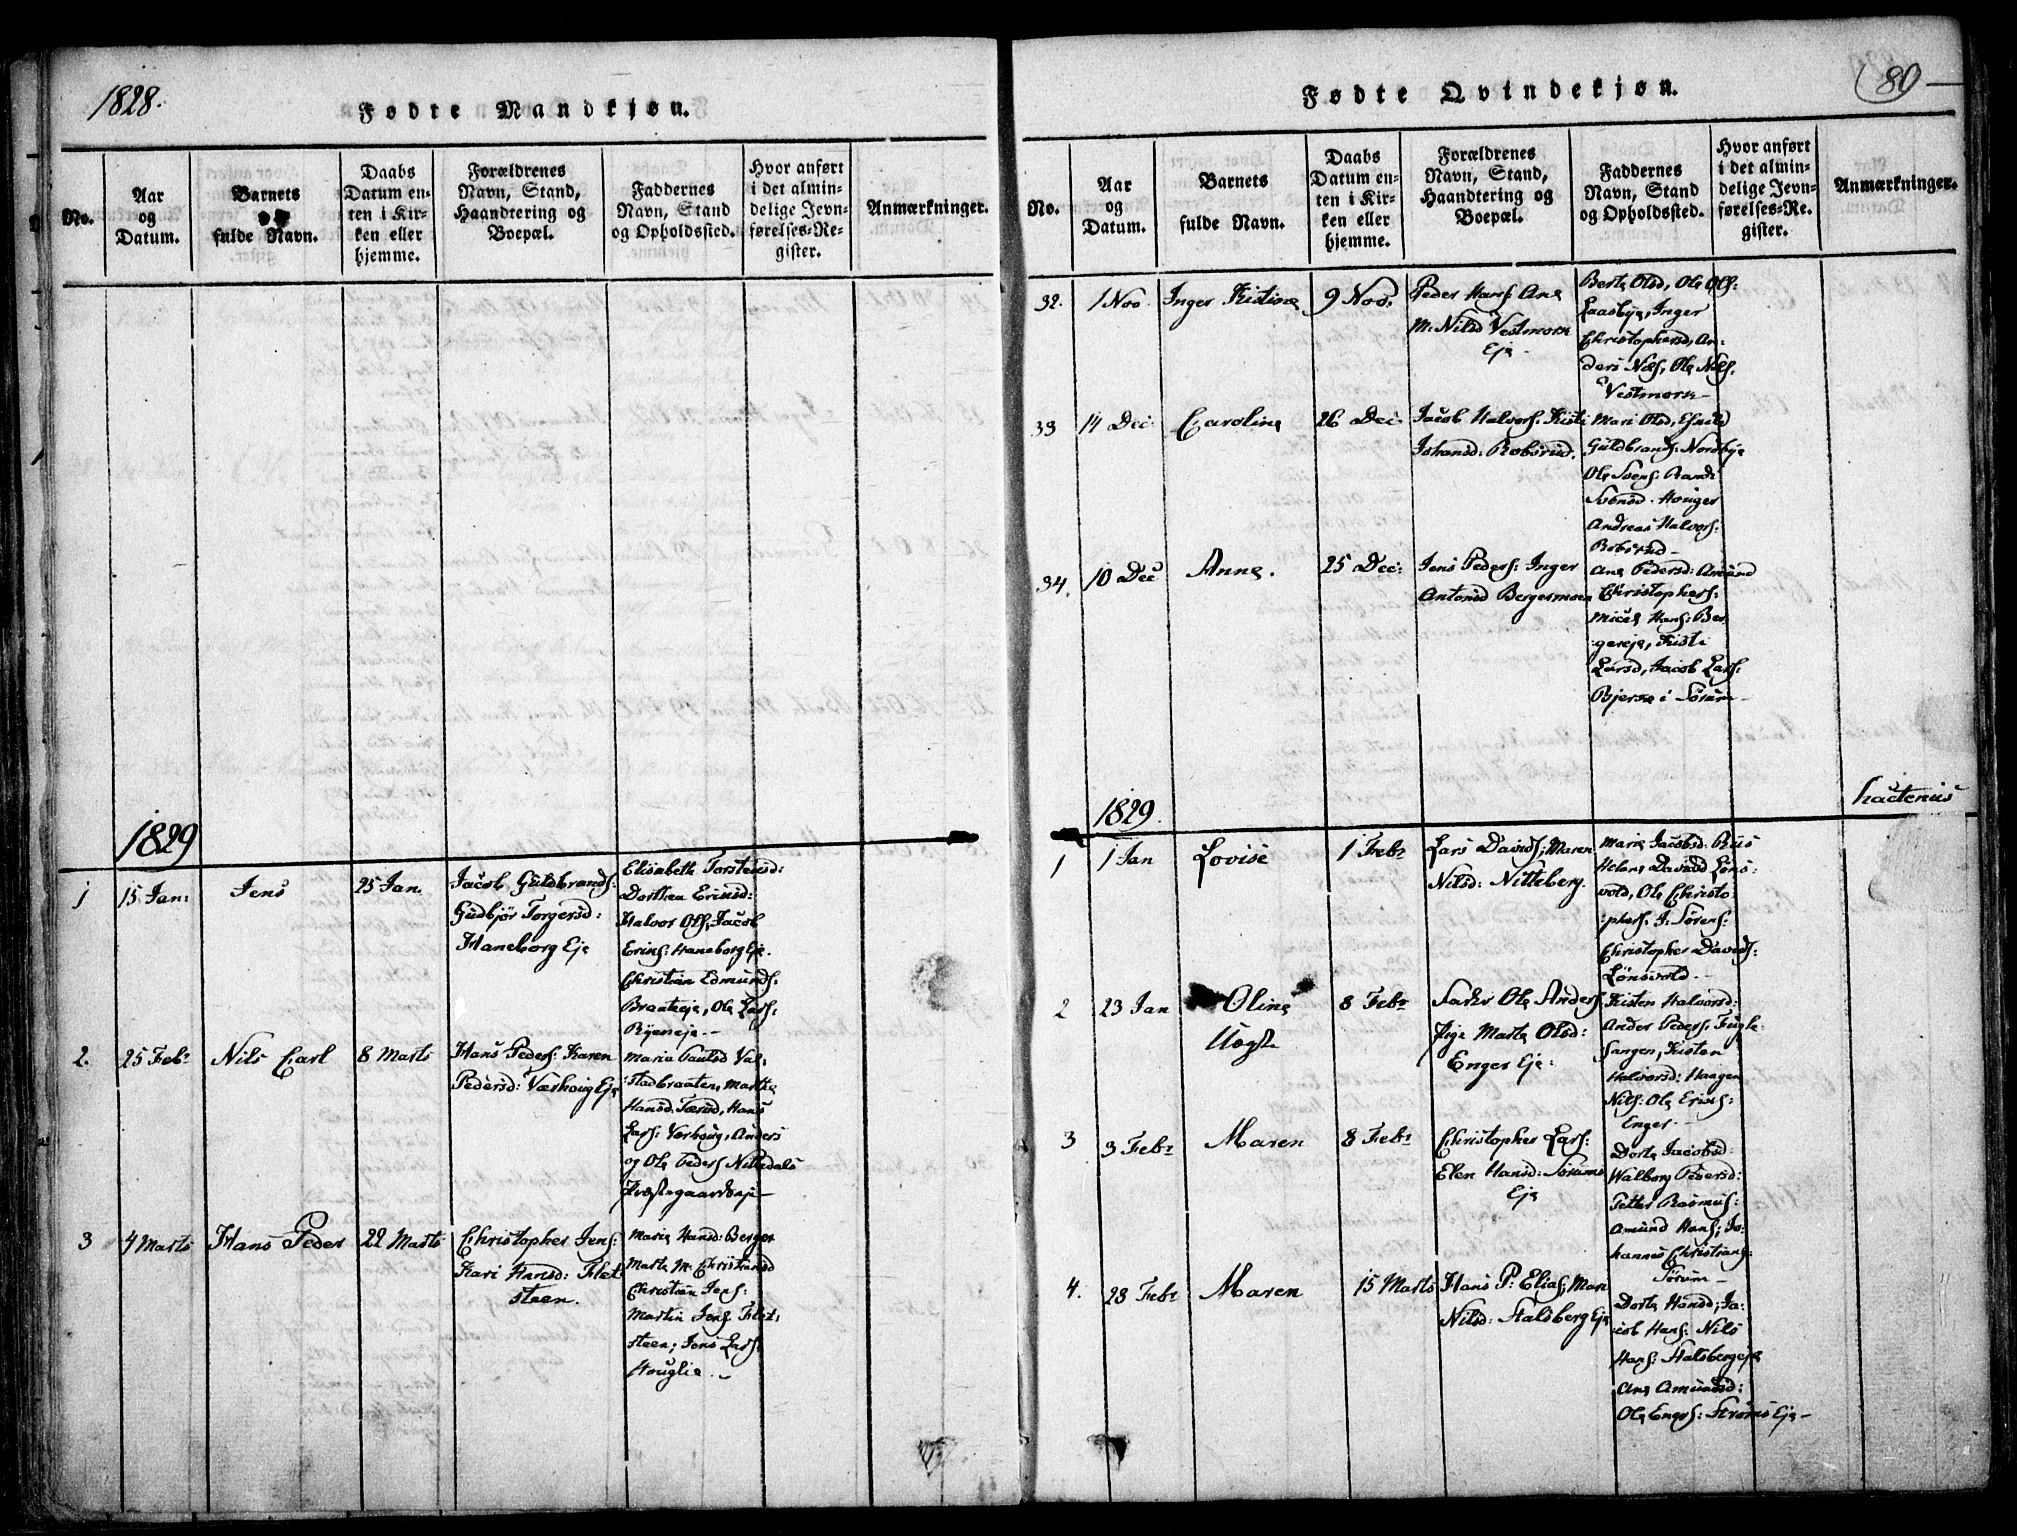 1828.
Fødte Mandkjøn.
No.
Aar
og
Datum.
Barnets
fulde Navn.
Daabs
Datum en-
ten i Kir-
ken eller
hjemme.
Forældrenes
Navn, Stand,
Haandtering og
Boepæl.
Faddernes
Navn, Stand
og Opholdssted.
Hvor anført
i det almin-
delige Jevn-
førelses-Re-
gister.
Anmærkninger.
1829
1
15 Jan:
Jens
25 Jan.
Jacob Guldbrands:
Gudbjör Torgersd:
Haneborg Eje
Elisabeth Torstensd:
Dorthea Erinsd:
Halvor Ols, Jacob
Erins: Haneborg Eje.
Christian Edmunds.
Braateeje, Ole Lars.
Ryeneje.-
2.
25 Febr
Nils Carl
8 Marts
Hans Peders: Karen
Pedersd: Værhoug Eje
Maria Paulsd Val-
stadbraaten, Marthe
Hansd: Hans
Lars: Værhoug, Anders
og Ole Peders Nittedals
Præstegaardseje-
3
4 Marts
Hans Peder
22 Marts
Christopher Jens:
Kari Hansd: Flet
steen.
Marie Hansd: Berger
Marte M. Christiansd
Christian Jens:
Martin Jens Flet:
steen; Jens Lars:
Houglie.-
Fødte Qvindekjøn.
80
No.
Aar
og
Datum.
Barnets
fulde Navn.
Daabs
Datum en-
ten i Kir-
ken eller
hjemme.
Forældrenes
Navn, Stand,
Haandtering og
Boepæl.
Faddernes
Navn, Stand
og Opholdssted.
Hvor anført
i det almin-
delige Jevn-
førelses-Re-
gister.
Anmærkninger.
32.
1 Nov.
Inger Kistine
9 Nov.
Peder Hans: Ane
M. Nilsd Vestmorn
Eje-
Berte Olsd, Ole Ols:
Laasbye, Inger
Christophersd, An:
ders Nils, Ole Nils.
Vestmorn-
33
14 Dec:
Caroline
26 Dec:
Jacob Halvors: Kisti
Johansd: Robsrud.
Mari Olsd,
Guldbrands: Nordbye
Ole Svens: Randi
Svensd. Houger
Andreas Halvors:
Robsrud-
34.
10 Dec
Anne.
25 Dec:
Jens Peders: Inger
Antonsd Bergermoen
Ane Pedersd: Amund
Christophers:
Micel Hans: Ber
gereje, Kisti
Larsd, Jacob Lars:
i Sörum-
1829.
hactenus
1
1 Jan
Lovise
1 Febr
Lars Davids; Maren
Nilsd: Nitteberg.
Marie Jacobsd: Aas
Helene Davidsd Löns:
vold, Ole Christo
:phers. J. Sörens:
Christopher Davids:
Lönsvold.-
2
23 Jan
Oline
Aagte
8 Febr
Ole Anders
Pige Marte Olsd:
Enger Eje:
Kisten Halvorsd:
Ander Peders: Fugle
sangen, Kisten
Halvorsd: Haagen
Nils: Ole Erins:
Enger.-
3
3 Febr
Maren
8 Febr
Christopher Lars:
Elen Hansd: Sörums
Eje
Dorte Jacobsd:
Walborg Pedersd:
Petter Rasmus:
Amund Hans; Jo-
hannes Christians:
Sörum-
4.
28 Febr
Maren
15 Marts
Hans P: Elias; Mari
Nilsd: Stalsberg Eje
Dorte Hansd; Ja-
cob Hans: Nils
Hans: Stalsbergeje
Ane Amundsd:
Ole Engers: Ströms Eje-